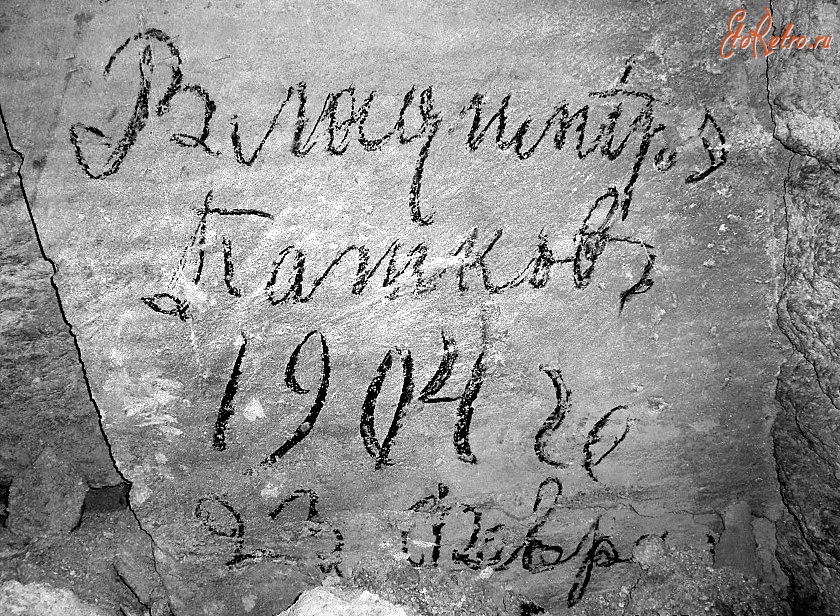 EtoRetro.ru
Владимiръ
Катковъ
1904 го
23 Февра